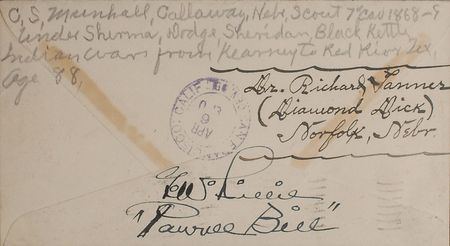 C, S, Munhall, Callaway, Nebr, Scout 7th Cav 1868-9
Under Sherma, Dodge Sheridan, Black Kettle
Indian Wars from Kearney to Red River Tex,
Age 88,
Dr. Richard Tanner
(Diamond Dick)
Norfolk, Nebr
SAN FRANCISCO CALIF.
APR
6
G.W. Lillie
"Pawnee Bill"